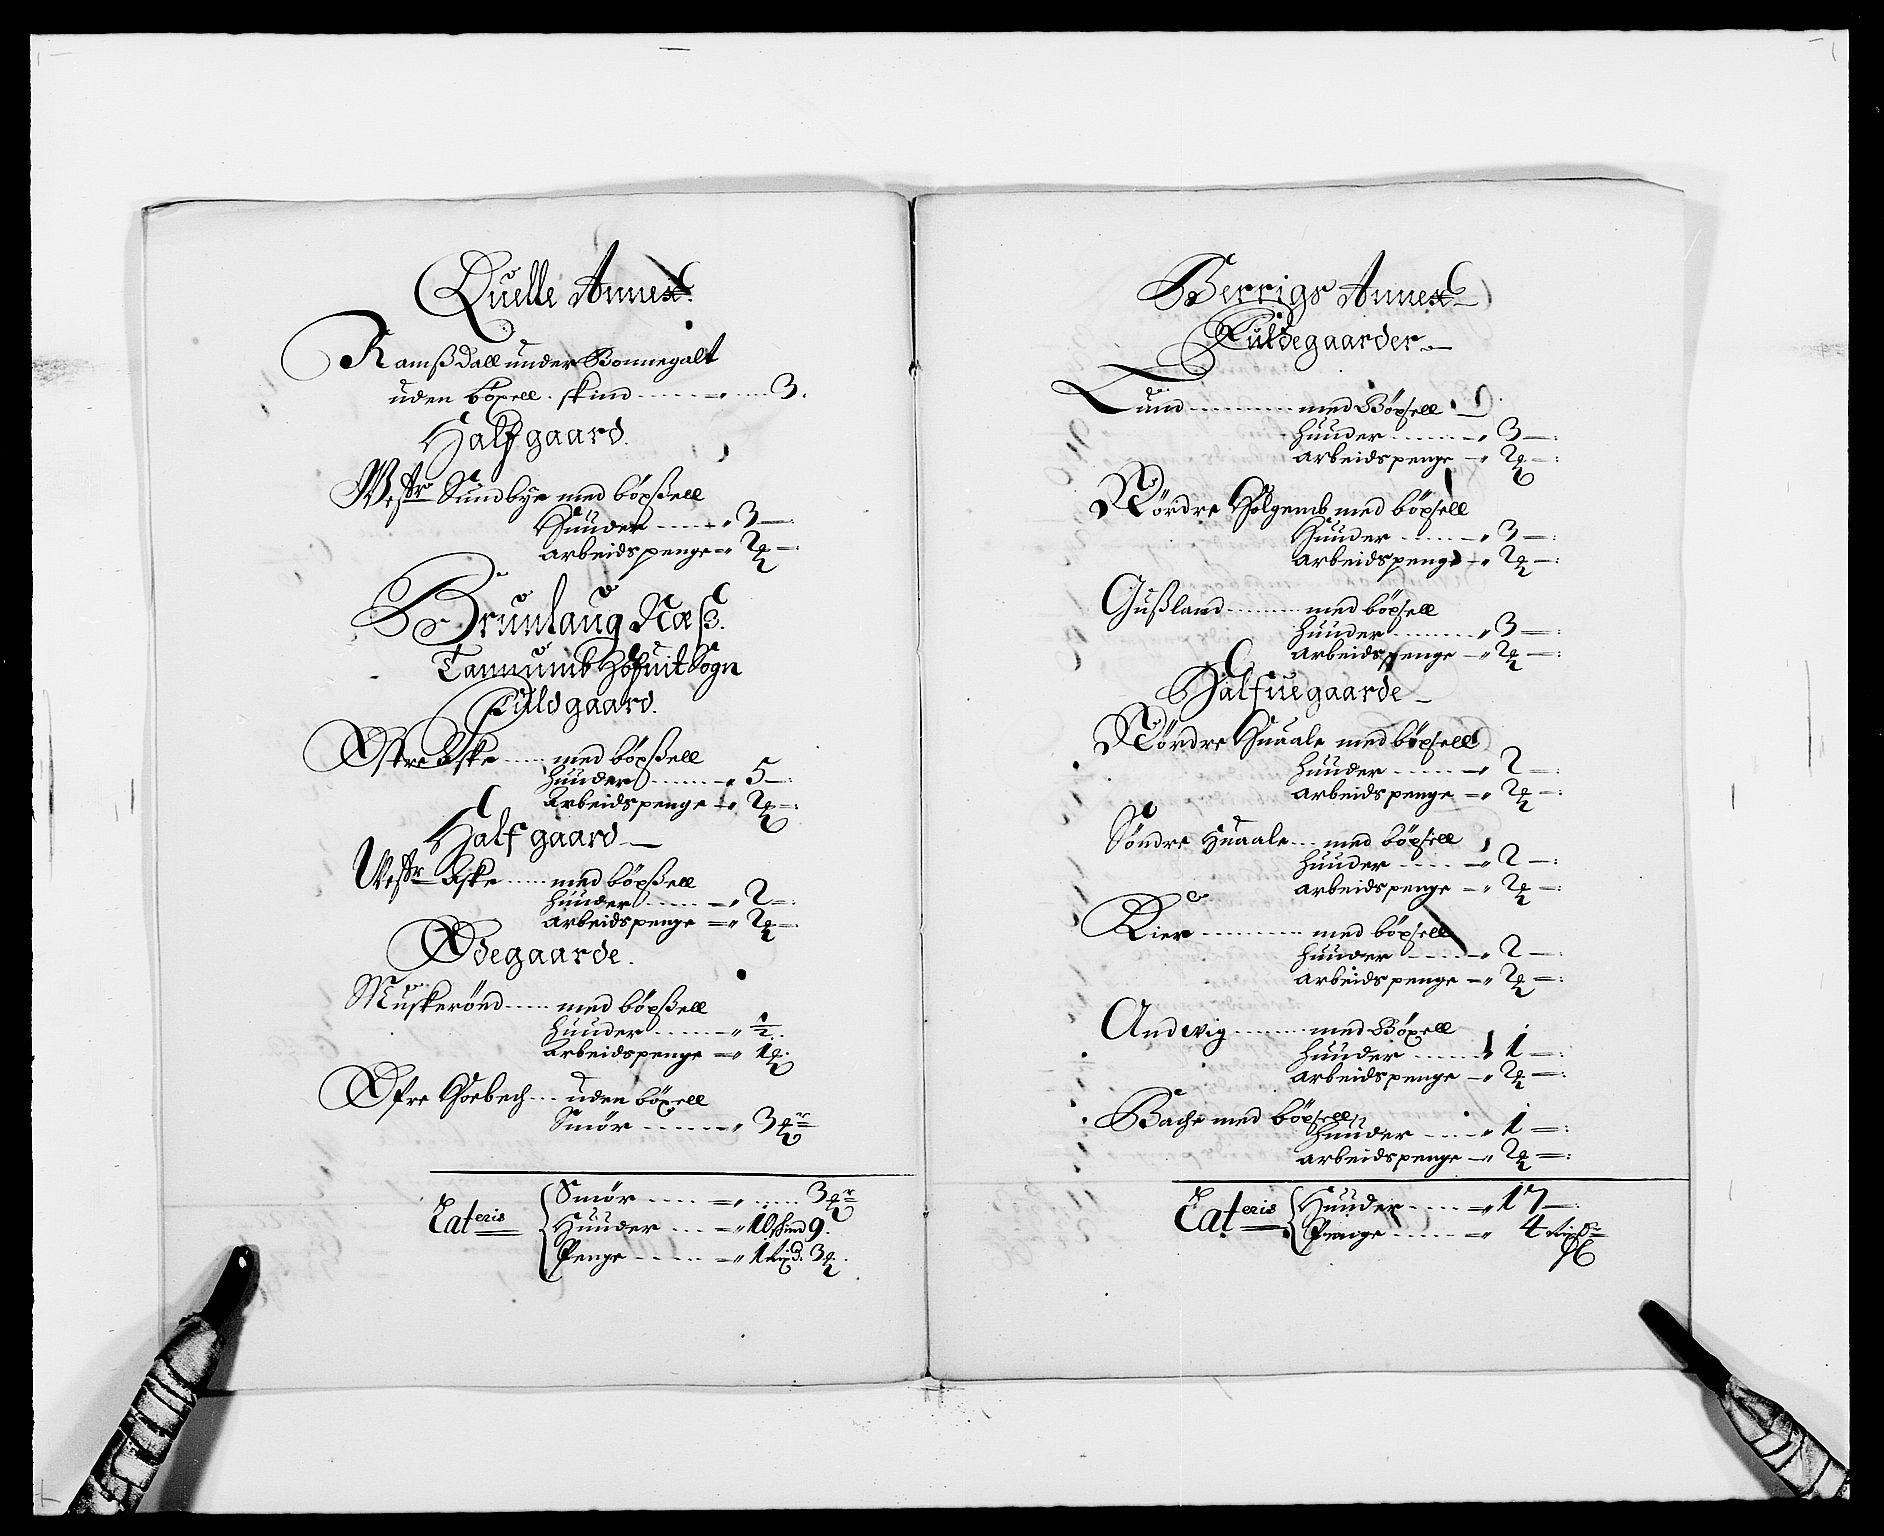 Quelle Annex.
Ramß Dall under Bonnegalt
uden böxell. skind ...... „ .... 3.
Halfgaard.
Westr Sundbye med böxßell
Huuder ...... „ 3 —:
arbeidspenge = „ 2 ℔ —:
Brunlaug Næß.
Tannumb Hofuit Sogn
Fuldgaard.
Østre Aske ..... med böxßell
huuder ........ „ 5 —:
Arbeidspenge — „ 2 ℔ —:
Half gaard —
Westr Aske ..... med böxßell
huuder ....... — „ 2 —:
Arbeidspenge = „ 2 ℔ —:
Ødegaarde.
Muskerönd ..... med böxßell
huuder ...... — „ ½.
Arbeidspenge = „ 1 ℔.
Øfre Goebech ... uden böxell
Smör ....... — „ 3 ℔r
Lateris { Smör ...... = „ ...... 3 ℔r
Huuder .... = „ 10, skind 9.
Penge ...... = „ 1 rixd. 3 ℔.
Berrigs Annex
Fuldegaarder —
Lund ............ med Böxsell
huuder ....... — „ 3 —:
arbeidspenge — „ 2 ℔ —:
Nördre Holgemb med böxsell
Huuder ....... — „ 3 —:
arbeidspenge — „ 2 ℔ —:
Gußland ......... med böxsell
huuder ........ „ 3 —:
arbeidspenge — „ 2 ℔ —:
Halfuegaarde —
Nördre Huaale med böxsell
huuder ...... — „ 2 —:
arbeidspenge = „ 2 ℔ —:
Söndre Huaale ... med böxsell
huuder ..... — „ 2 —:
arbeidspenge — „ 2 ℔ —:
Kier ............. med böxsell
huuder ....... — „ 2 —:
arbeidspenge — „ 2 ℔ —:
Andwig ......... med Böxell
huuder ........ 1 —:
arbeidspenge — „ 2 ℔ —:
Bache med böxsell,
huuder ..... „ 1 —:
arbeidspenge — „ 2 ℔ —:
Lateris { Huuder ..... = „ 17 —:
Penge ...... = „ 4 rixdr